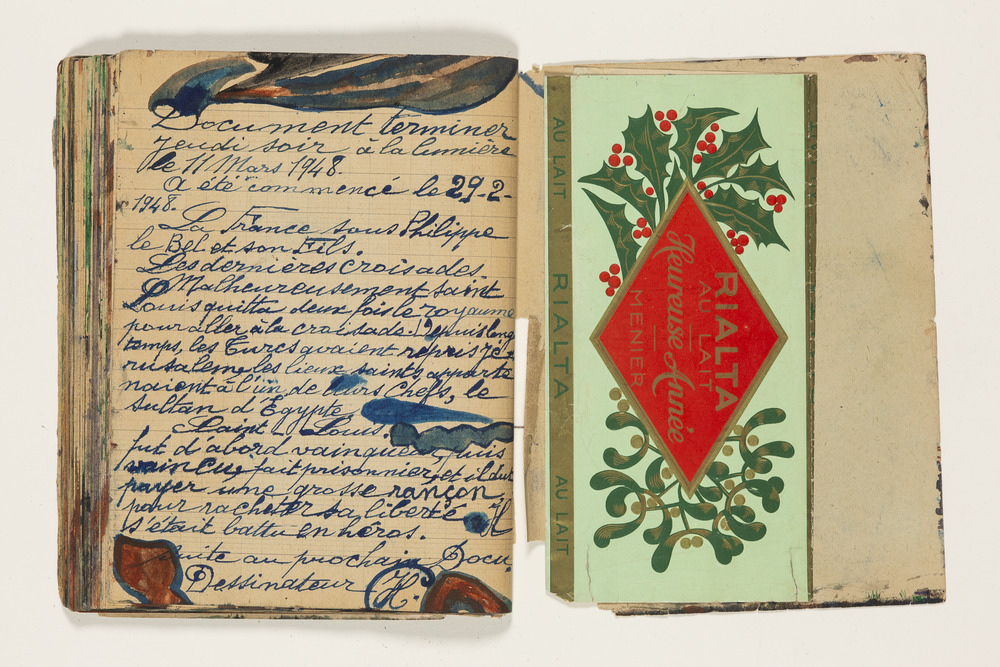 Document terminer
Jeudi soir à la lumière
le 11 Mars 1948.
A été commencé le 29-2-
1948.
La France sous Philippe
le Bel et son Fils.
Les dernières croisades.
Malheureusement Saint
Louis quitta deux fois le royaume
pour aller à la croisade. Depuis long
temps, les Turcs avaient repris Jé-
rusalem, les lieux saints apparte
naient à l'un de leurs Chefs, le
sultan d'Egypte
Saint-Louis.
fut d'abord vainqueur, puis
vaincu, fait prisonnier, et il dut
payer une grosse rançon
pour racheter sa liberté Il
s'était battu en héros.
suite au prochain Docu.
Dessinateur H.
AU LAIT RIALTA AU LAIT
RIALTA
AU LAIT
Heureuse Année
MENIER